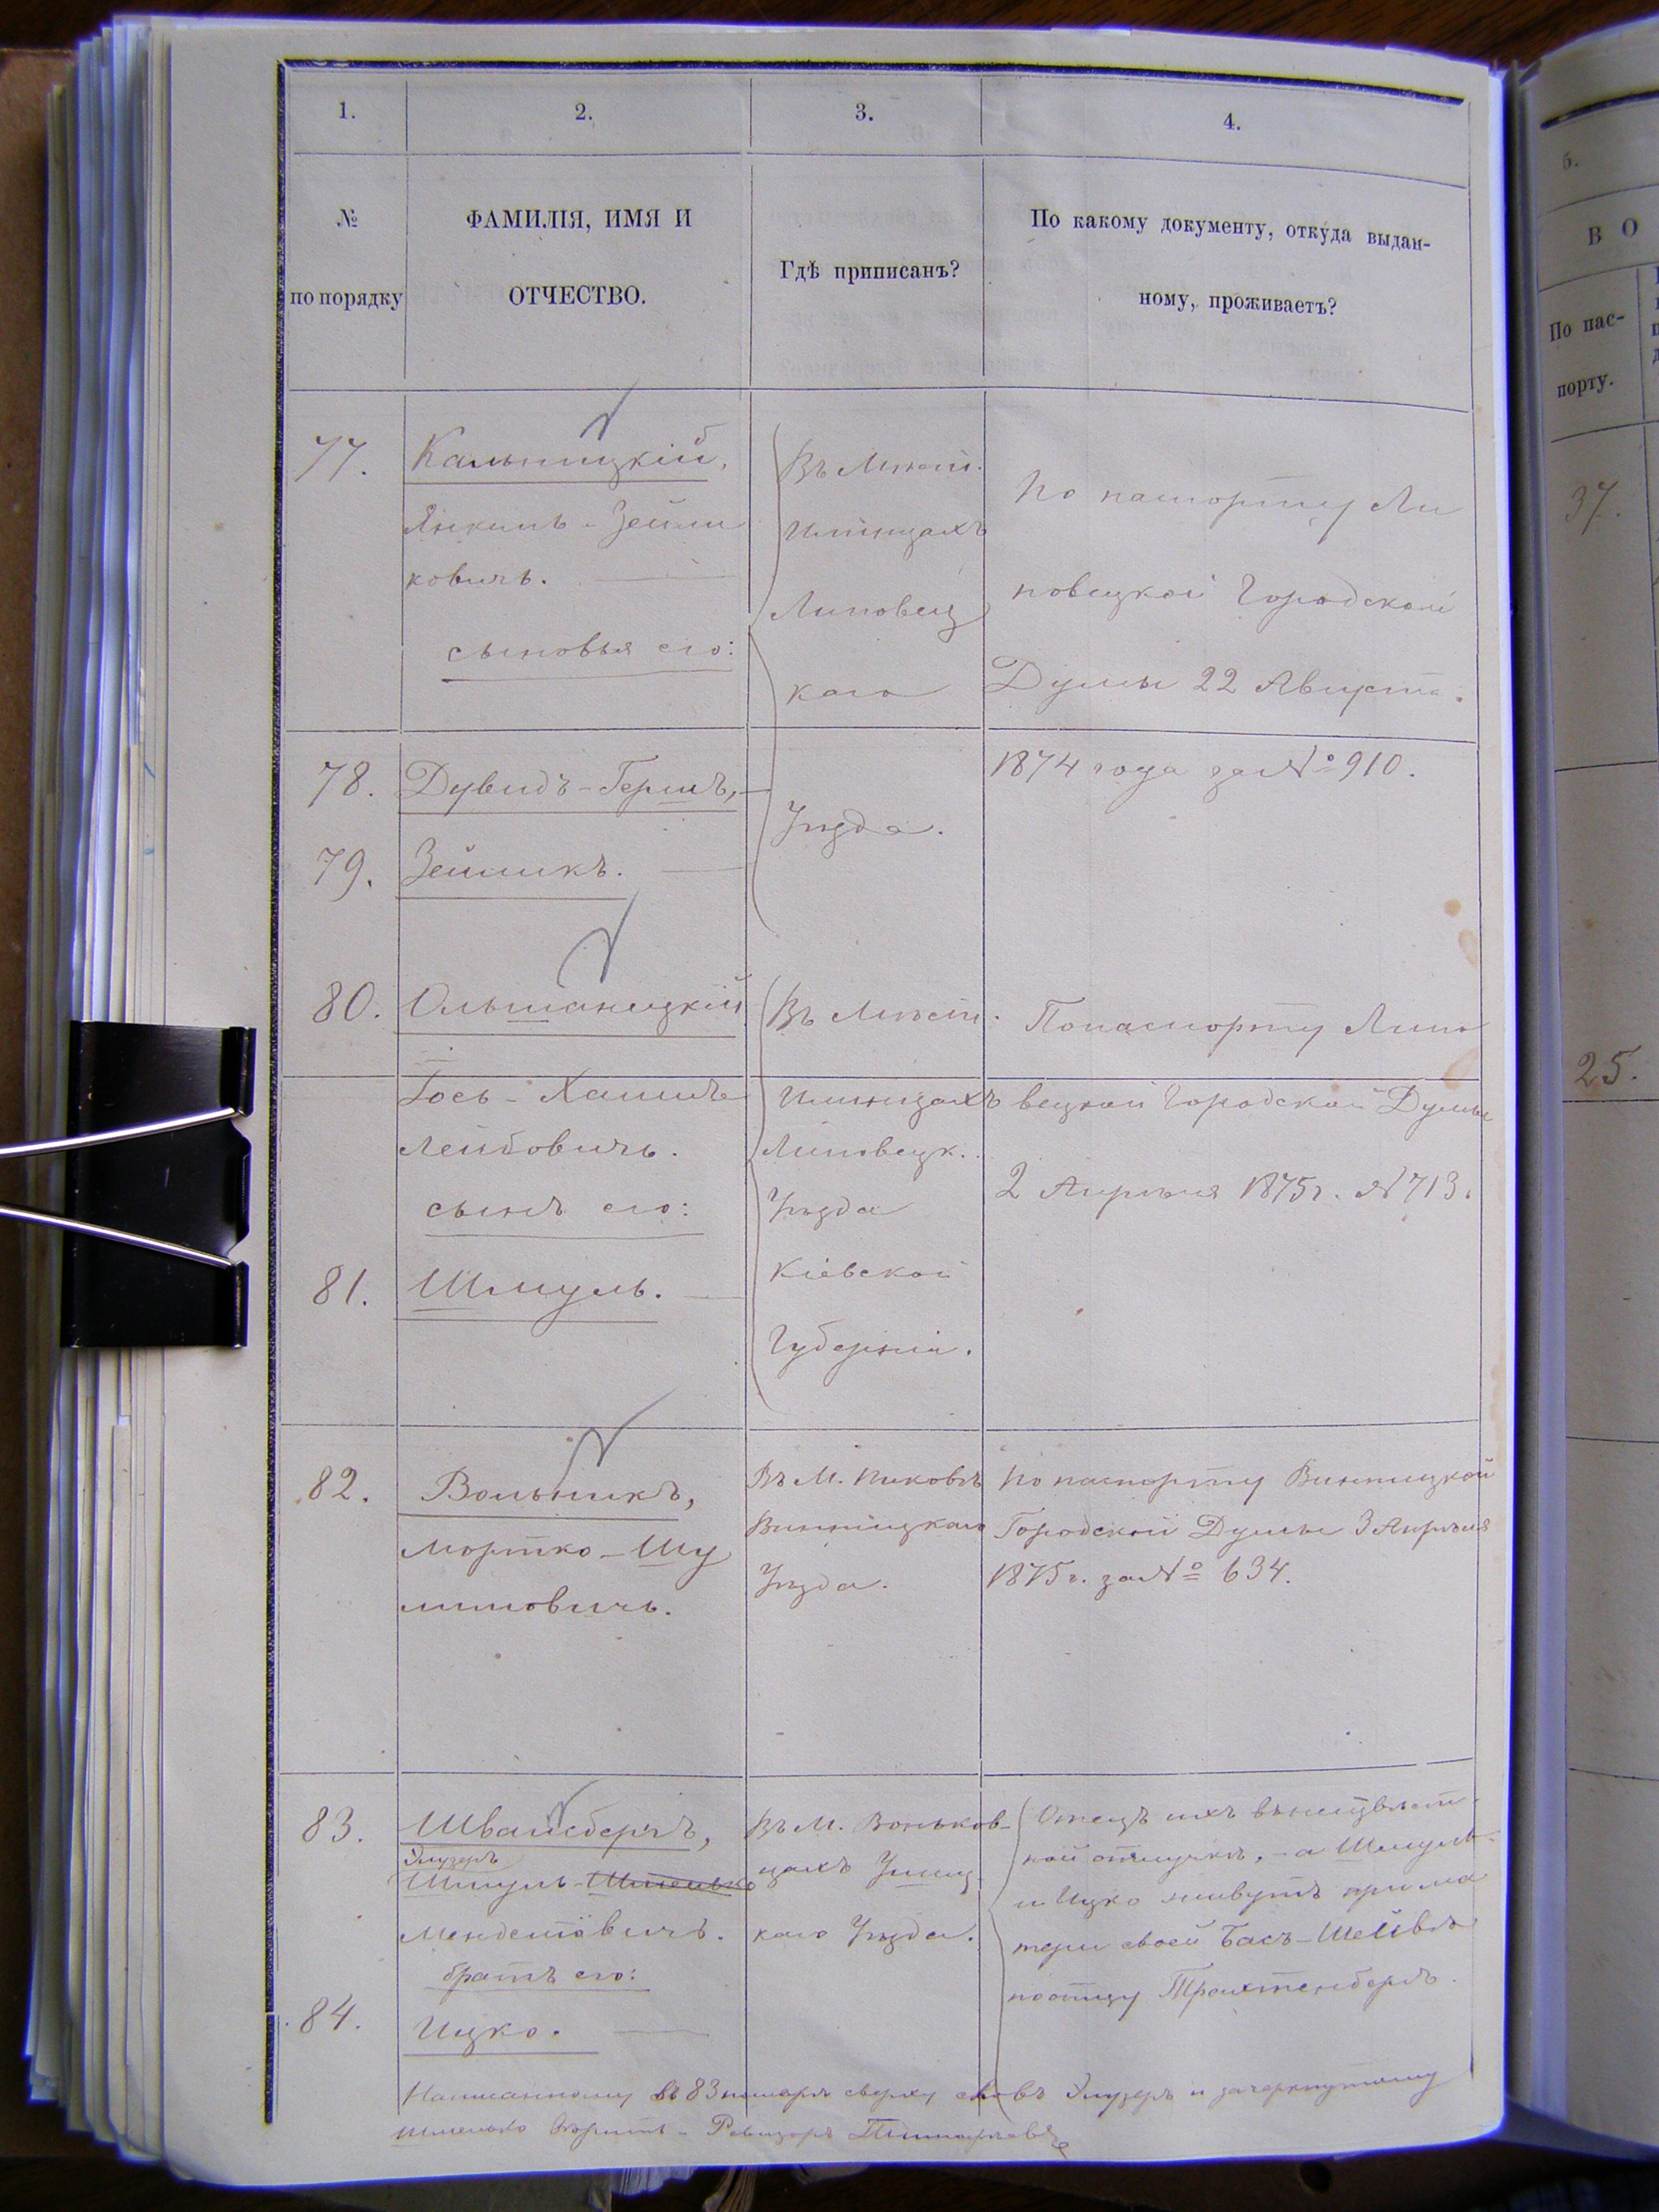 1.
2.
3.
4.
№
по порядку
ФАМИЛІЯ, ИМЯ И
ОТЧЕСТВО.
Гдѣ приписанъ?
По какому документу, откуда выдан-
ному, проживаетъ?
77.
Кальницкій,
Янкель-Зейли
ковичъ.
сыновья его:
Въ Мѣст.
Илинцахъ
Липовец
каго
Уѣзда.
По паспорту Ли
повецкой Городской
Думы 22 Августа
1874 года за № 910.
78.
Дувидъ-Гершъ,
79.
Зейликъ.
80.
Ольшаницкій
Іось-Хаимъ
Лейбовичъ.
сынъ его:
Въ Мѣст.
Илинцахъ
Липовецк.
Уѣзда
Кіевской
Губерніи.
По паспорту Липо
вецкой Городской Думы
2 Апрѣля 1875 г. № 713.
81.
Шмуль.
82.
Вольникъ,
Мортко-Шу
лимовичъ.
Въ М. Пиковѣ
Винницкаго
Уѣзда.
По паспорту Винницкой
Городской Думы 3 Апрѣля
1875 г. за № 634.
83.
Швайсбергъ,
Элузеръ
Шмуль-Шмелько
Менделіовичъ.
братъ его:
Въ М. Воньков-
цахъ Ушиц
каго Уѣзда.
Отецъ ихъ въ неизвѣст
ной отлучкѣ, а Шмуль
и Ицко живутъ при ма
тери своей Бась-Шейвѣ
по отцу Трахтенбергъ.
84.
Ицко.
Написанному въ 83 номерѣ сверху словъ Элузеръ и зачеркнутому
Шмелько вѣрить - Ревизоръ
5.
ВО
По пас-
порту.
37.
25.